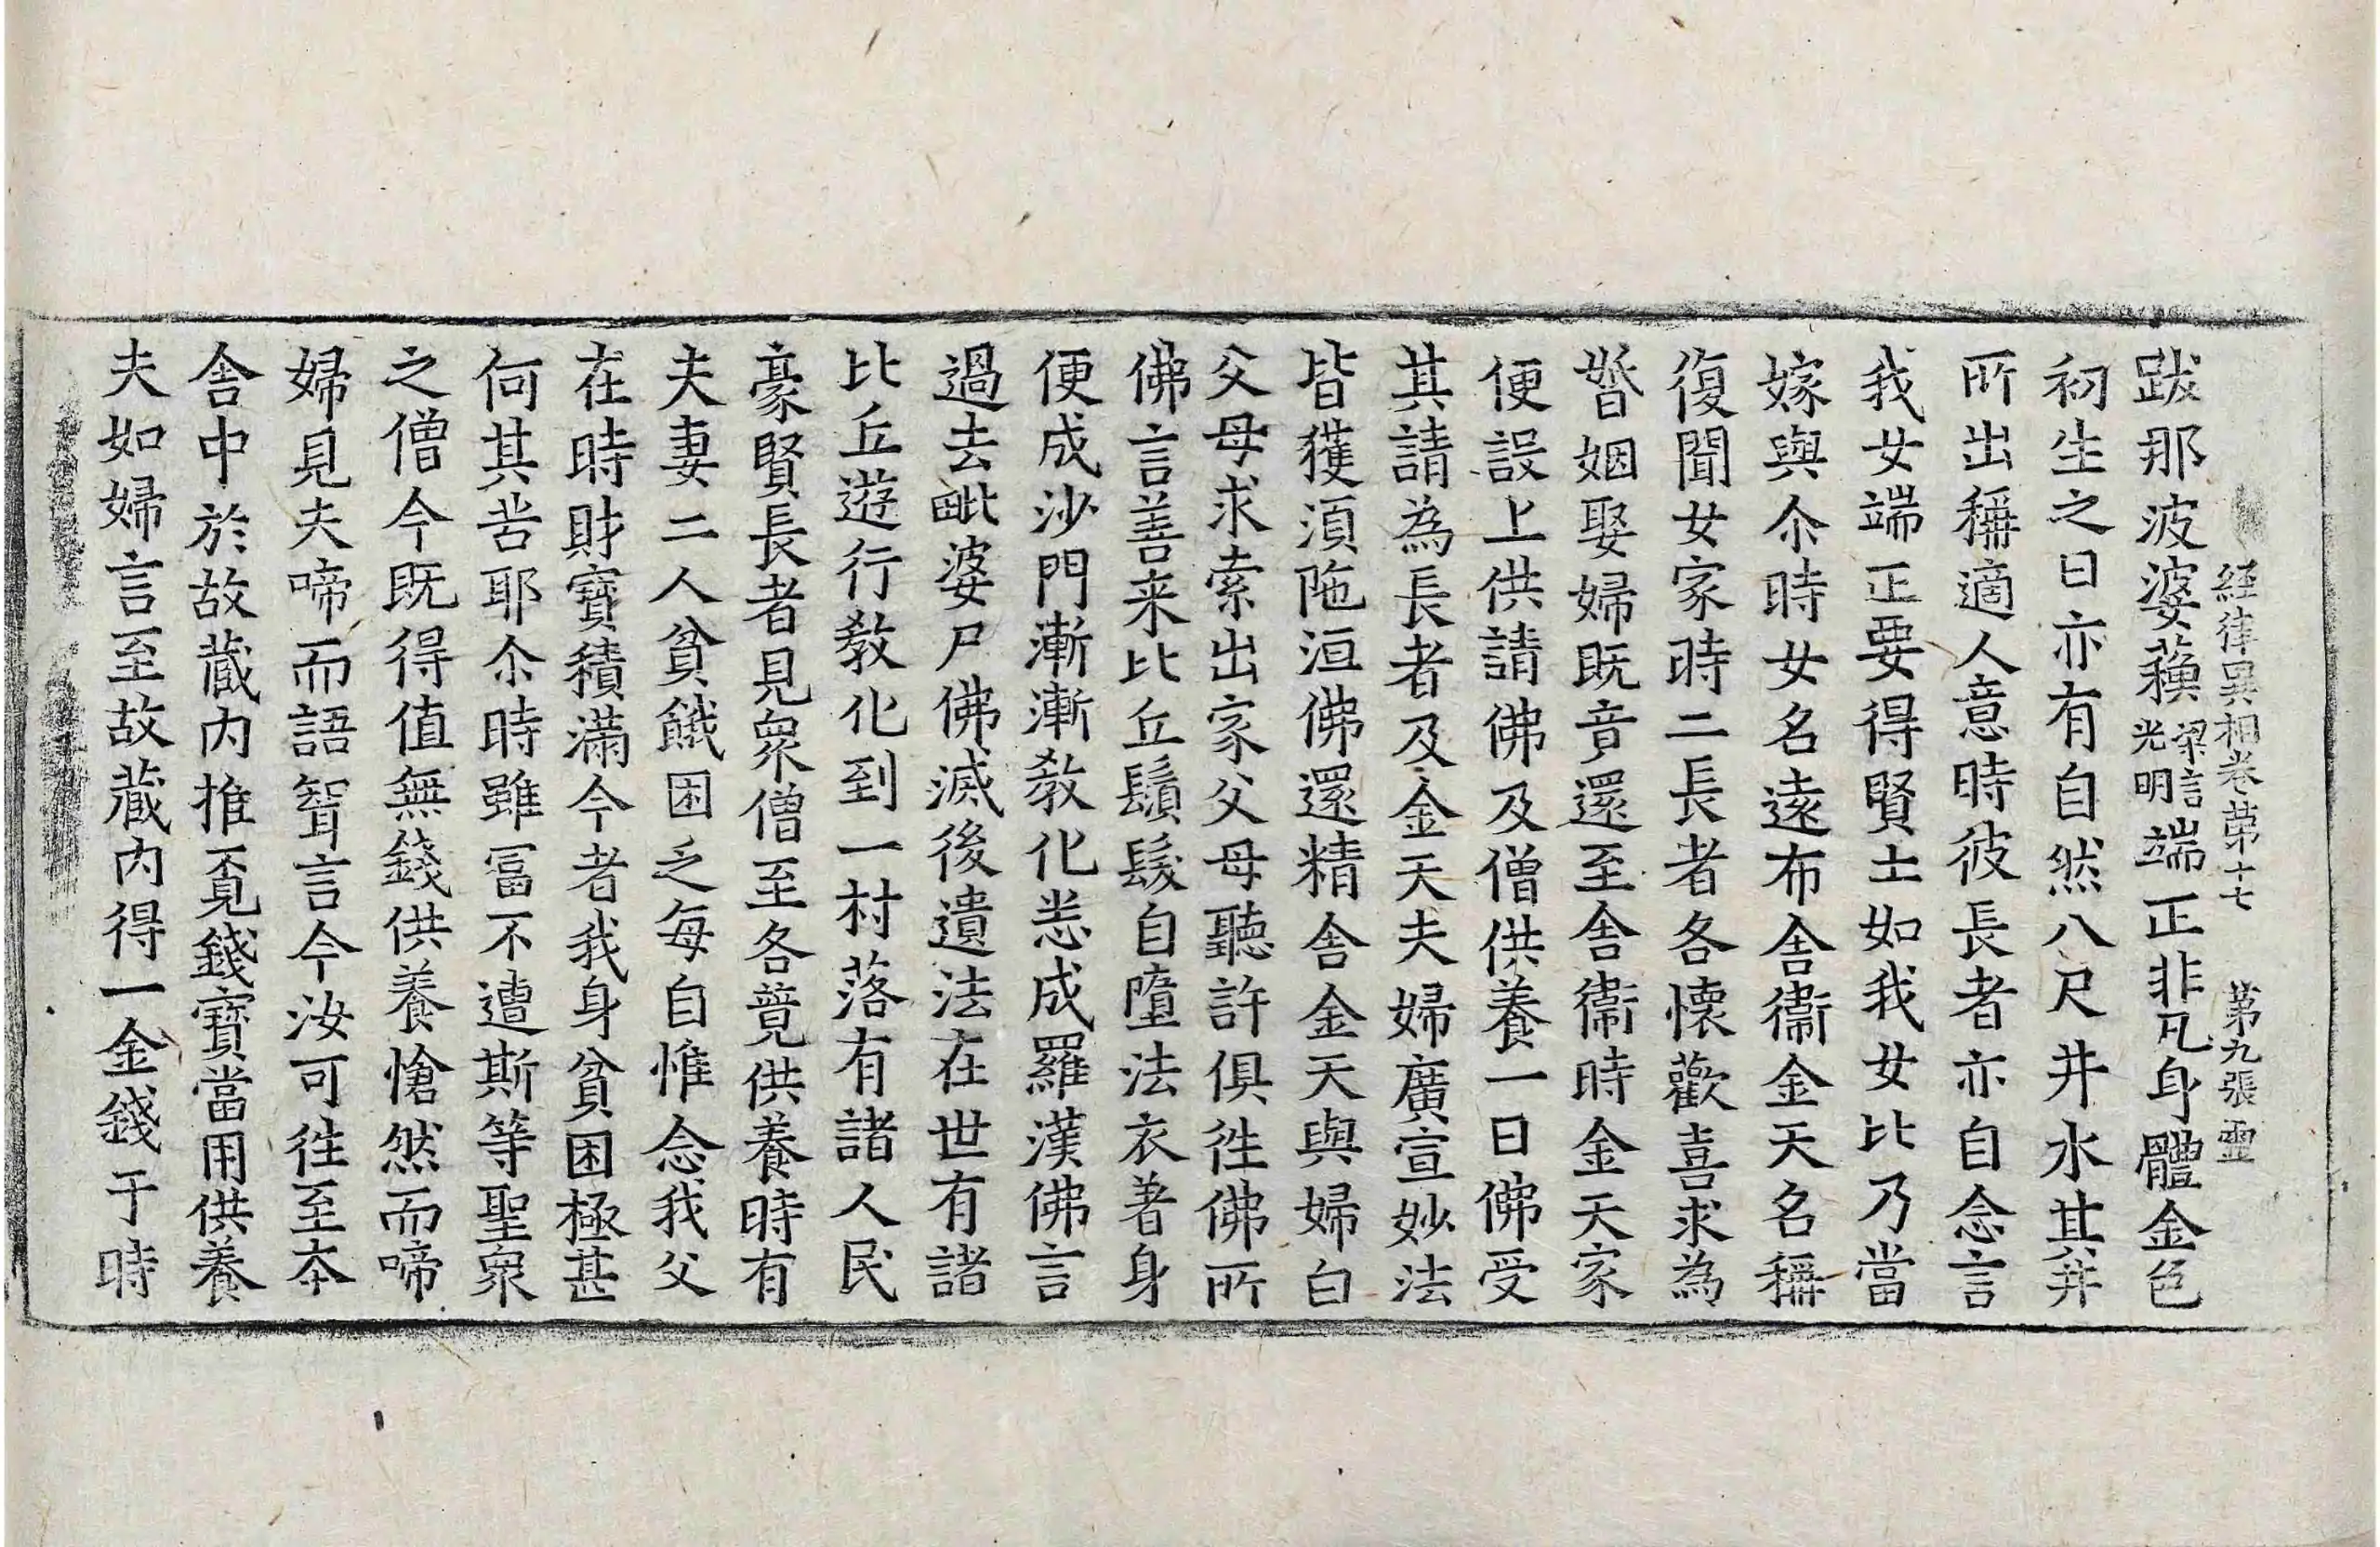 経律異相卷第十七　第九張　靈
跋那波婆蘓梁言光明端正非凡身體金色
初生之日亦有自然八尺井水其井
所出稱適人意時彼長者亦自念言
我女端正要得賢士如我女比乃當
嫁與尒時女名遠布舍衞金天名稱
復聞女家時二長者各懷歡喜求為
婚姻娶婦既竟還至舍衞時金天家
便設上供請佛及僧供養一日佛受
其請為長者及金天夫婦廣宣妙法
皆獲湏陁洹佛還精舍金天與婦白
父母求索出家父母聽許俱徃佛所
佛言善来比丘鬚髮自墮法衣著身
便成沙門漸漸教化悉成羅漢佛言
過去毗婆尸佛滅後遺法在世有諸
比丘遊行教化到一村落有諸人民
豪賢長者見衆僧至各竟供養時有
夫妻二人貧餓困乏每自惟念我父
在時財寶積滿今者我身貧困極甚
何其苦耶尒時雖冨不遭斯等聖衆
之僧今既得值無錢供養愴然而啼
婦見夫啼而語聟言今汝可徃至本
舍中於故藏内推覔錢寶當用供養
夫如婦言至故藏内得一金錢于時